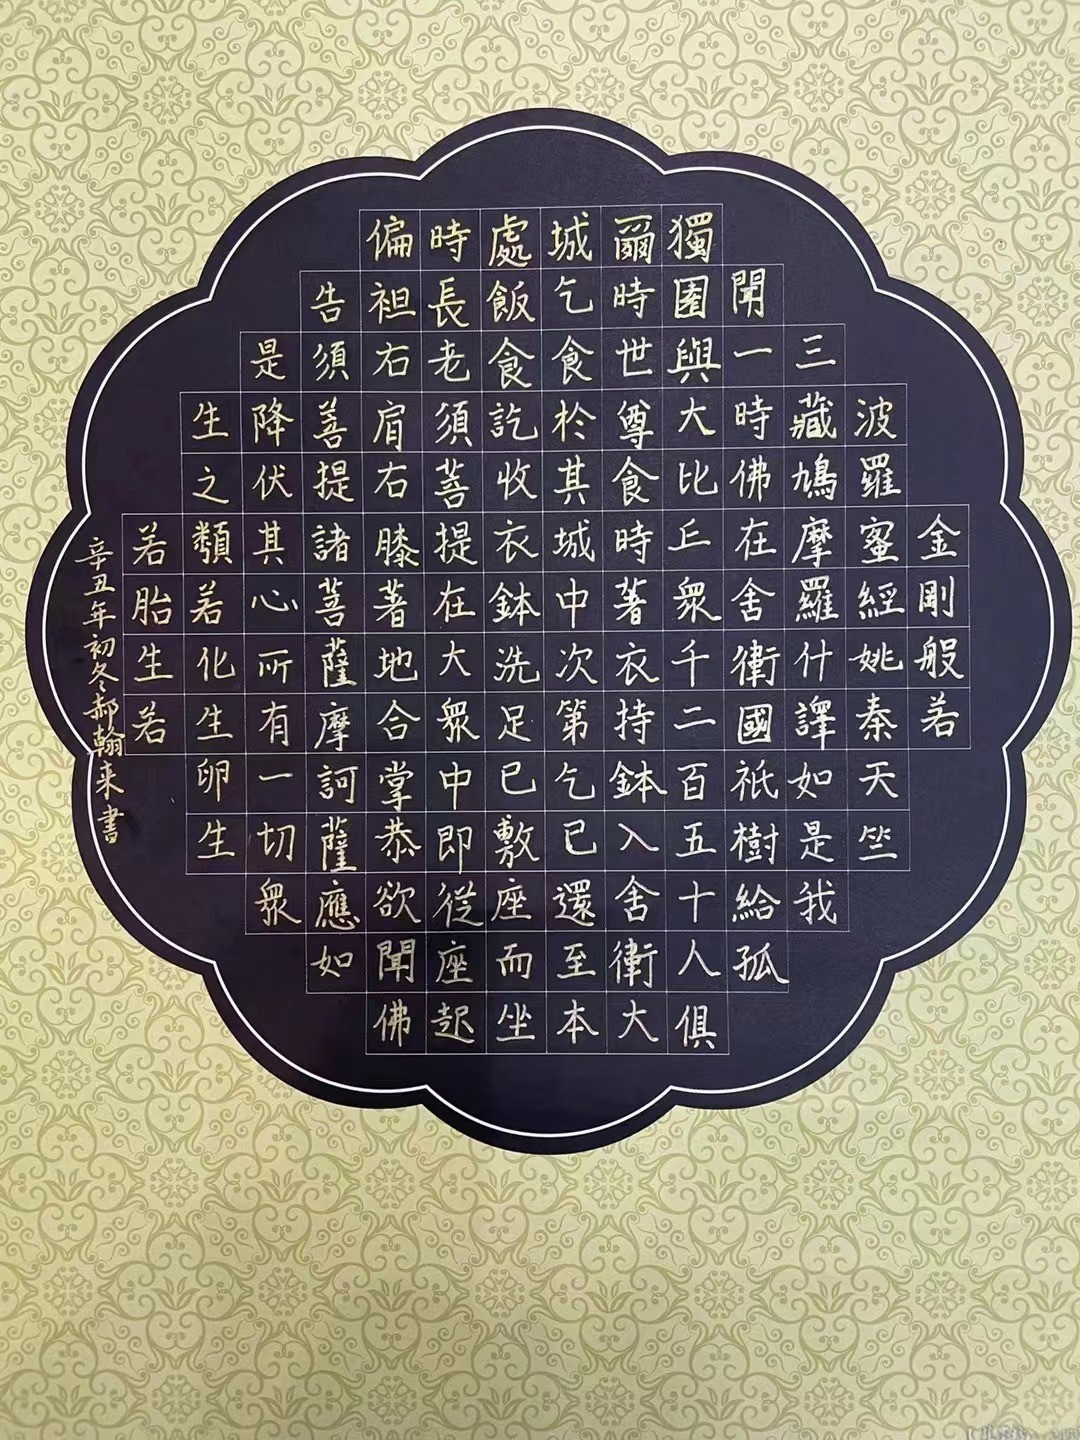 金剛般若
波羅蜜經姚秦天竺
三藏鳩摩羅什譯如是我
聞一時佛在舍衛國祇樹給孤
獨園與大比丘眾千二百五十人俱
爾時世尊食時著衣持鉢入舍衛大
城乞食於其城中次第乞已還至本
處飯食訖收衣鉢洗足已敷座而坐
時長老須菩提在大眾中即從座起
偏袒右肩右膝著地合掌恭欲聞佛
告須善提諸菩薩摩訶薩應如
是降伏其心所有一切眾
生之類若化生卵生
若胎生若
辛丑年初冬郝翰来書